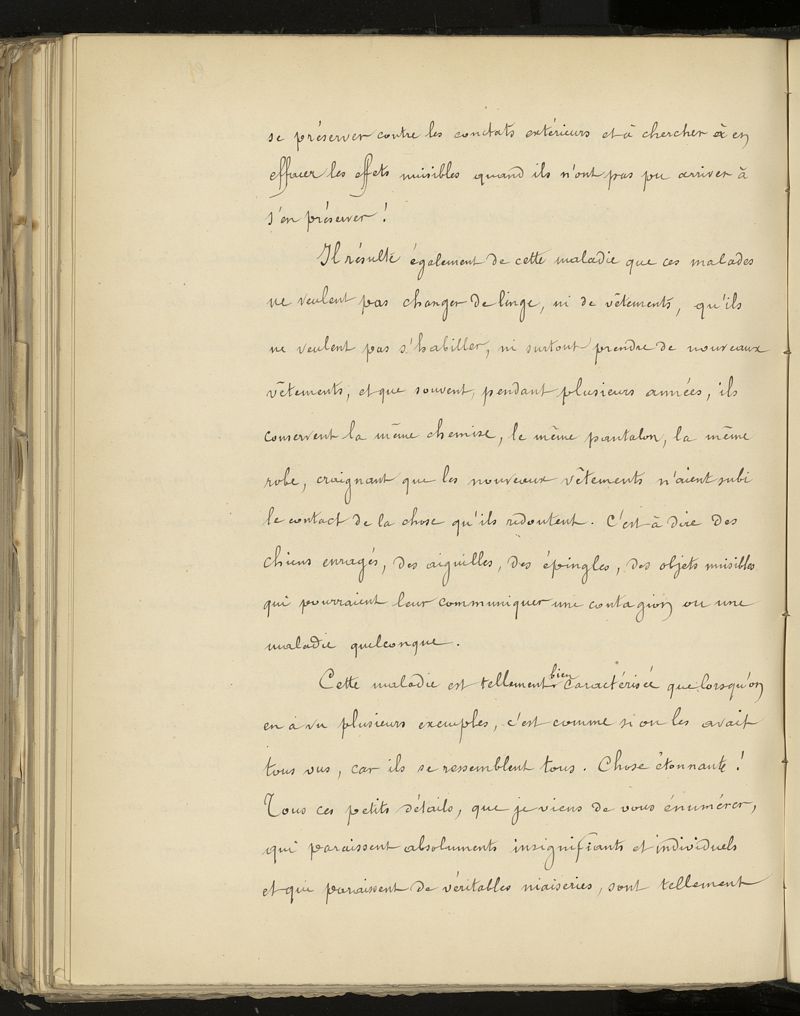 se préserver contre les contats extérieurs et à chercher à en
effacer les effets nuisibles quand ils n'ont pas pu arriver à
s'en préserver !
Il résulte également de cette maladie que ces malades
ne veulent pas changer de linge, ni de vêtements, qu'ils
ne veulent pas s'habiller, ni surtout prendre de nouveaux
vêtements, et que souvent, pendant plusieurs années, ils
conservent la même chemise, le même pantalon, la même
robe, craignant que les nouveaux vêtements n'aient subi
le contact de la chose qu'ils redoutent. C'est à dire des
chiens enragés, des aiguilles, des épingles, des objets nuisibles
qui pourraient leur communiquer une contagion ou une
maladie quelconque.
Cette maladie est tellement bien caractérisée que lorsqu'on
en a vu plusieurs exemples, c'est comme si on les avait
tous vus, car ils se ressemblent tous. Chose étonnante !
Tous ces petits détails, que je viens de vous énumérer,
qui paraissent absoluments insignifiants et individuels
et qui paraissent de véritables niaiseries, sont tellement